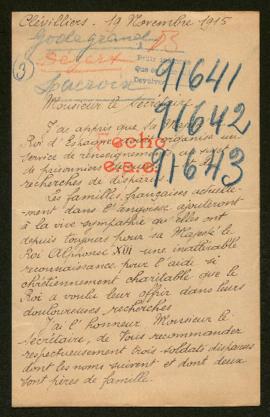 Clévilliers. 19 Novembre 1915
Godegrand, B
3 Devaux
Lacroix
91641
91642
91643
echo
e.s.e.
Monsieur le Secrétaire
J'ai appris que Sa Majesté le
Roi d'Espagne organise un
service de renseignements au sujet
de prisonniers
recherches de disparus
Les familles françaises actuelle-
-ment dans l'angoisse ajouteront
à la vive sympathie qu'elles ont
depuis toujours pour Sa Majesté le
Roi Alphonse XIII une inaltérable
reconnaissance pour l'aide si
chrétiennement charitable que le
Roi a voulu leur offrir dans leurs
douloureuses recherches
J'ai l'honneur Monsieur le
Secrétaire, de Vous recommander
respectueusement trois soldats disparus
dont les noms suivent et dont deux
sont pères de famille.